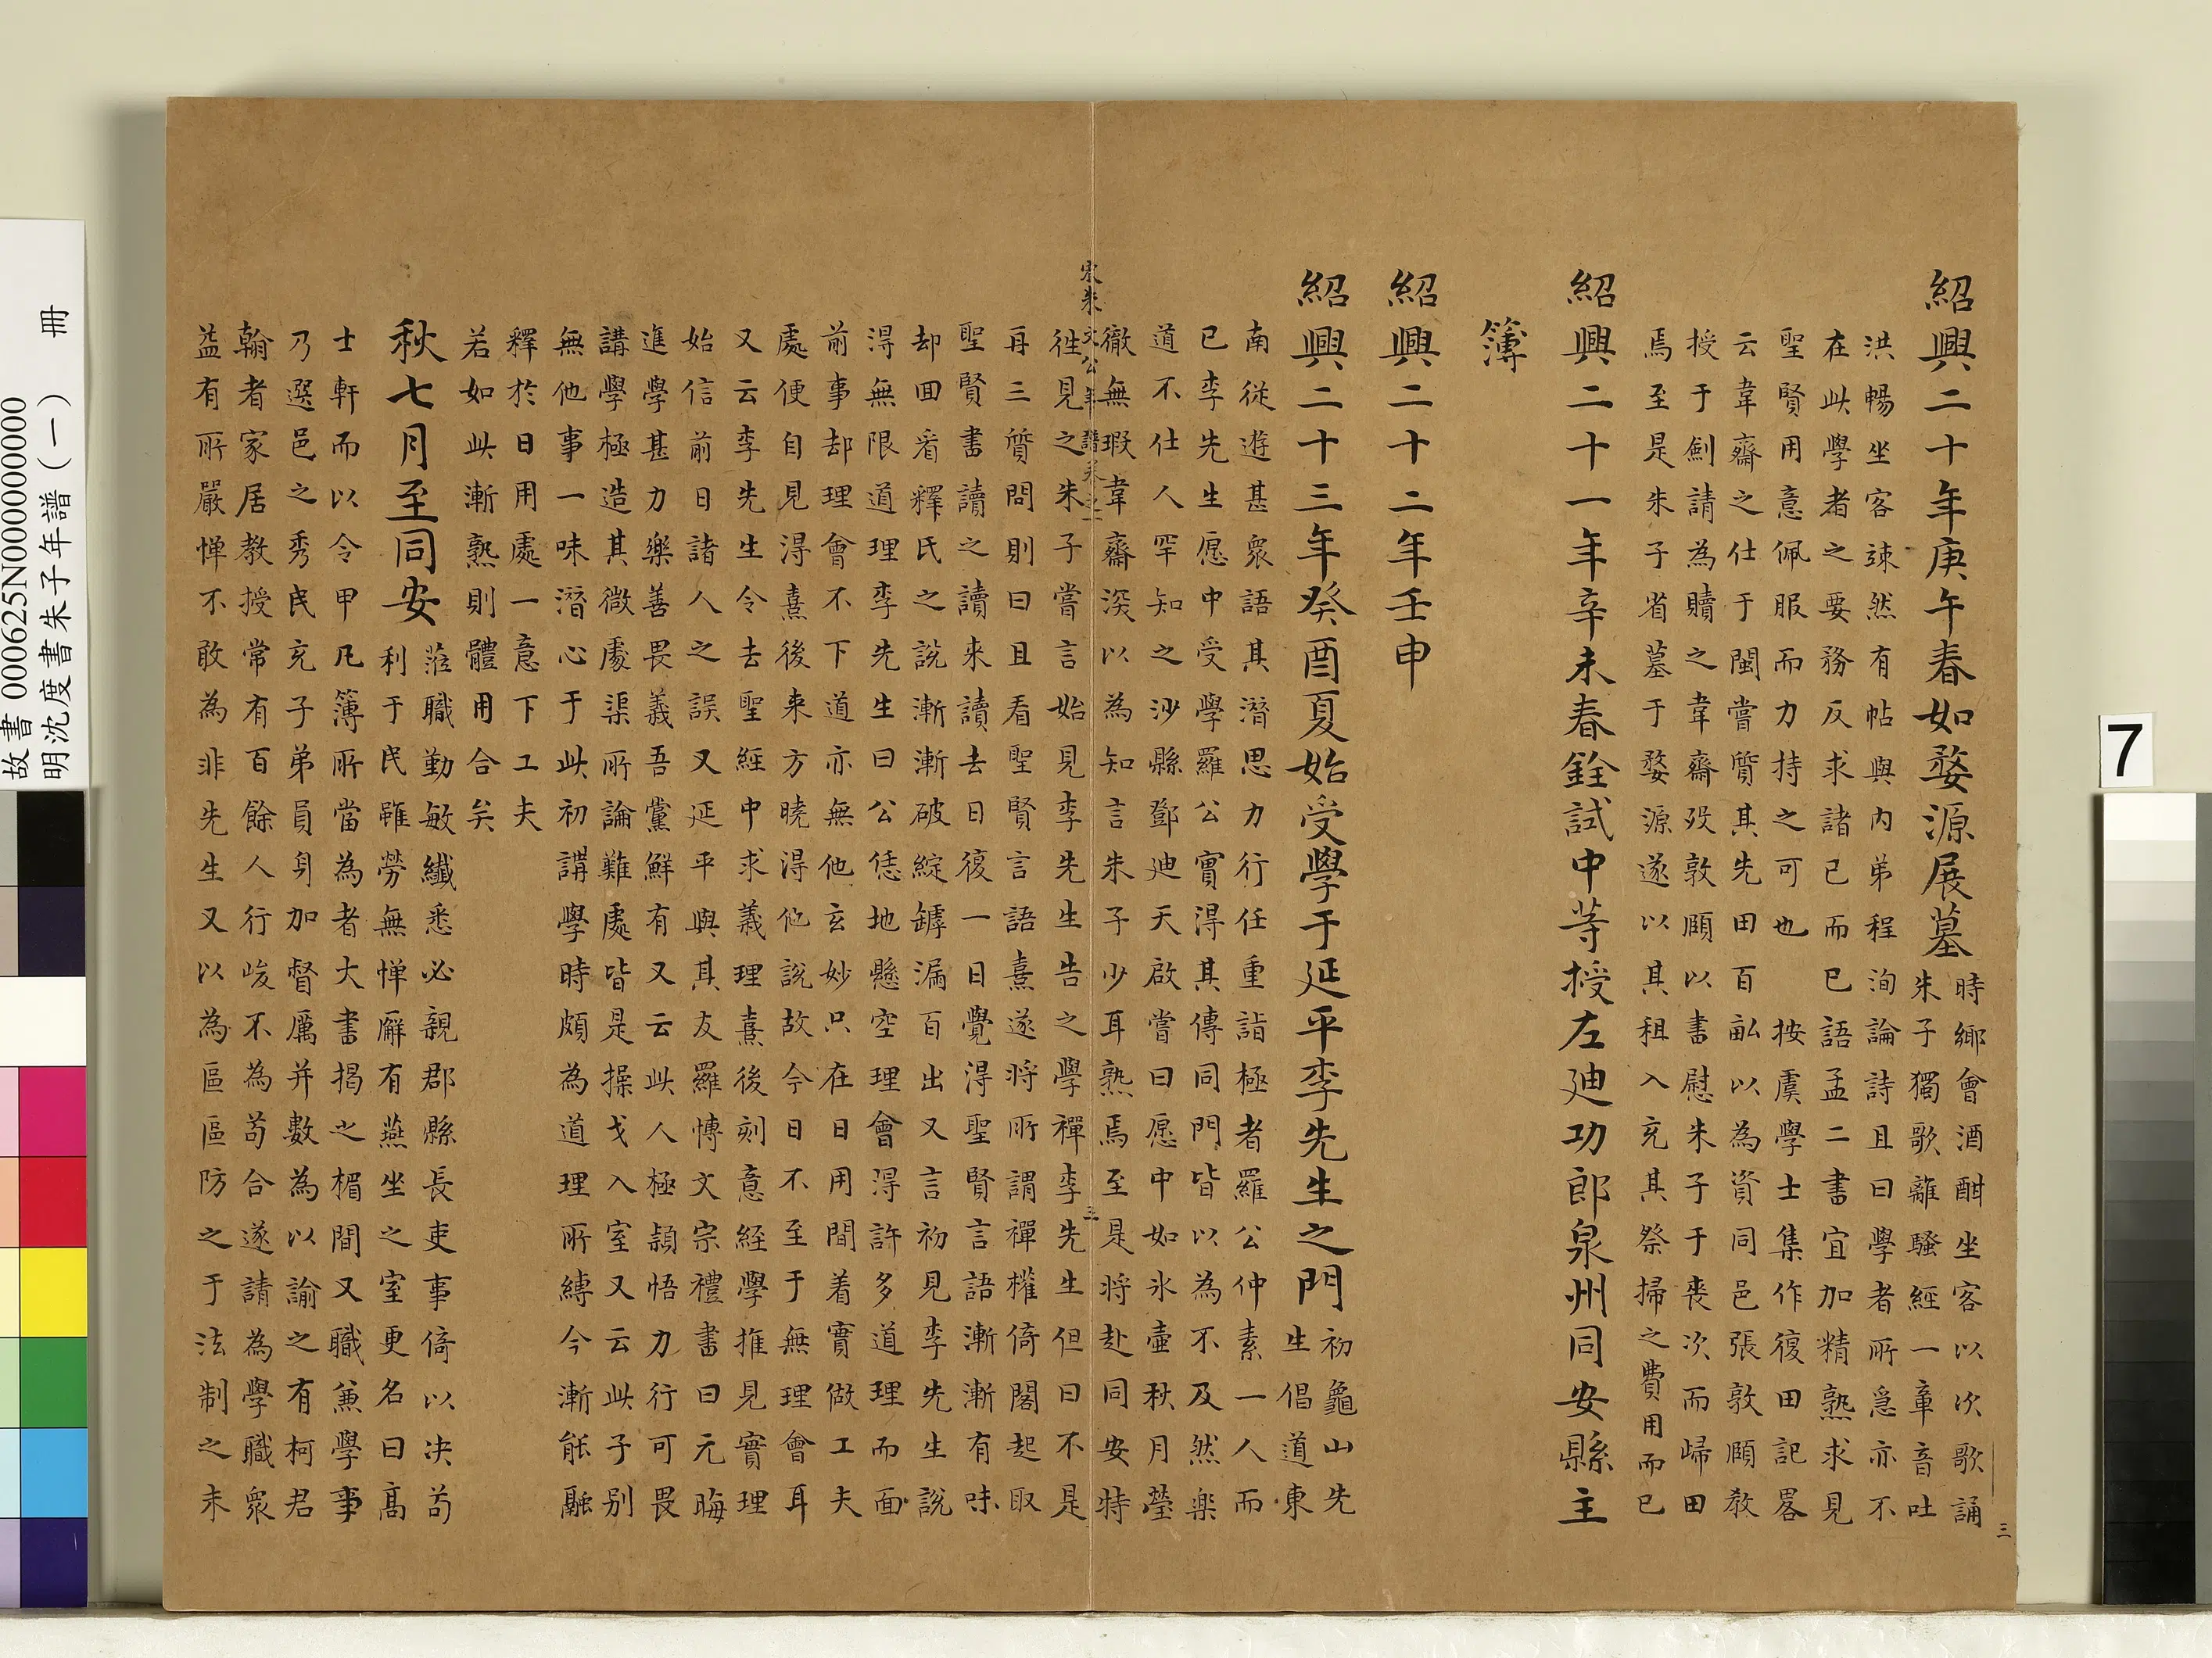 紹興二十年庚午春如婺源展墓時鄉會酒酣坐客以次歌誦
朱子獨歌離騷經一章音吐
洪暢坐客竦然有帖與內弟程洵論詩且曰學者所急亦不
在此學者之要務反求諸已而已語孟二書宜加精熟求見
聖賢用意佩服而力持之可也按虞學士集作復田記畧
云韋齋之仕于閩嘗質其先田百畝以為資同邑張敦頤教
授于劍請為贖之韋齋歿敦頤以書慰朱子于喪次而歸田
焉至是朱子省墓于婺源遂以其租入充其祭掃之費用而已
紹興二十一年辛未春銓試中等授左廸功郎泉州同安縣主
簿
紹興二十二年壬申
紹興二十三年癸酉夏始受學于延平李先生之門初龜山先
生倡道東
南從遊甚衆語其潛思力行任重詣極者羅公仲素一人而
已李先生愿中受學羅公實得其傳同門皆以為不及然樂
道不仕人罕知之沙縣鄧廸天啟嘗曰愿中如氷壺秋月瑩
徹無瑕韋齋深以為知言朱子少耳熟焉至是將赴同安特
宋朱文公年譜卷之一
三
徃見之朱子嘗言始見李先生告之學禪李先生但曰不是
再三質問則曰且看聖賢言語熹遂將所謂禪權倚閣起取
聖賢書讀之讀來讀去日復一日覺得聖賢言語漸漸有味
却回看釋氏之說漸漸破綻鏬漏百出又言初見李先生說
得無限道理李先生曰公恁地懸空理會得許多道理而面
前事却理會不下道亦無他玄妙只在日用間着實做工夫
處便自見得熹後来方曉得他說故今日不至于無理會耳
又云李先生令去聖經中求義理熹後刻意経學推見實理
始信前日諸人之誤又延平與其友羅博文宗禮書曰元晦
進學甚力樂善畏義吾黨鮮有又云此人極頴悟力行可畏
講學極造其微處渠所論難處皆是操戈入室又云此子別
無他事一味潛心于此初講學時頗為道理所縛今漸能融
釋於日用處一意下工夫
若如此漸熟則體用合矣
秋七月至同安蒞職勤敏纖悉必親郡縣長吏事倚以决苟
利于民雖勞無憚廨有燕坐之室更名曰高
士軒而以令甲凡簿所當為者大書揭之楣間又職兼學事
乃選邑之秀民充子弟員身加督厲并數為以諭之有柯君
翰者家居教授常有百餘人行峻不為苟合遂請為學職衆
益有所嚴憚不敢為非先生又以為區區防之于法制之末
三
故書 000625N000000000
明沈度書朱子年譜（一） 冊
7